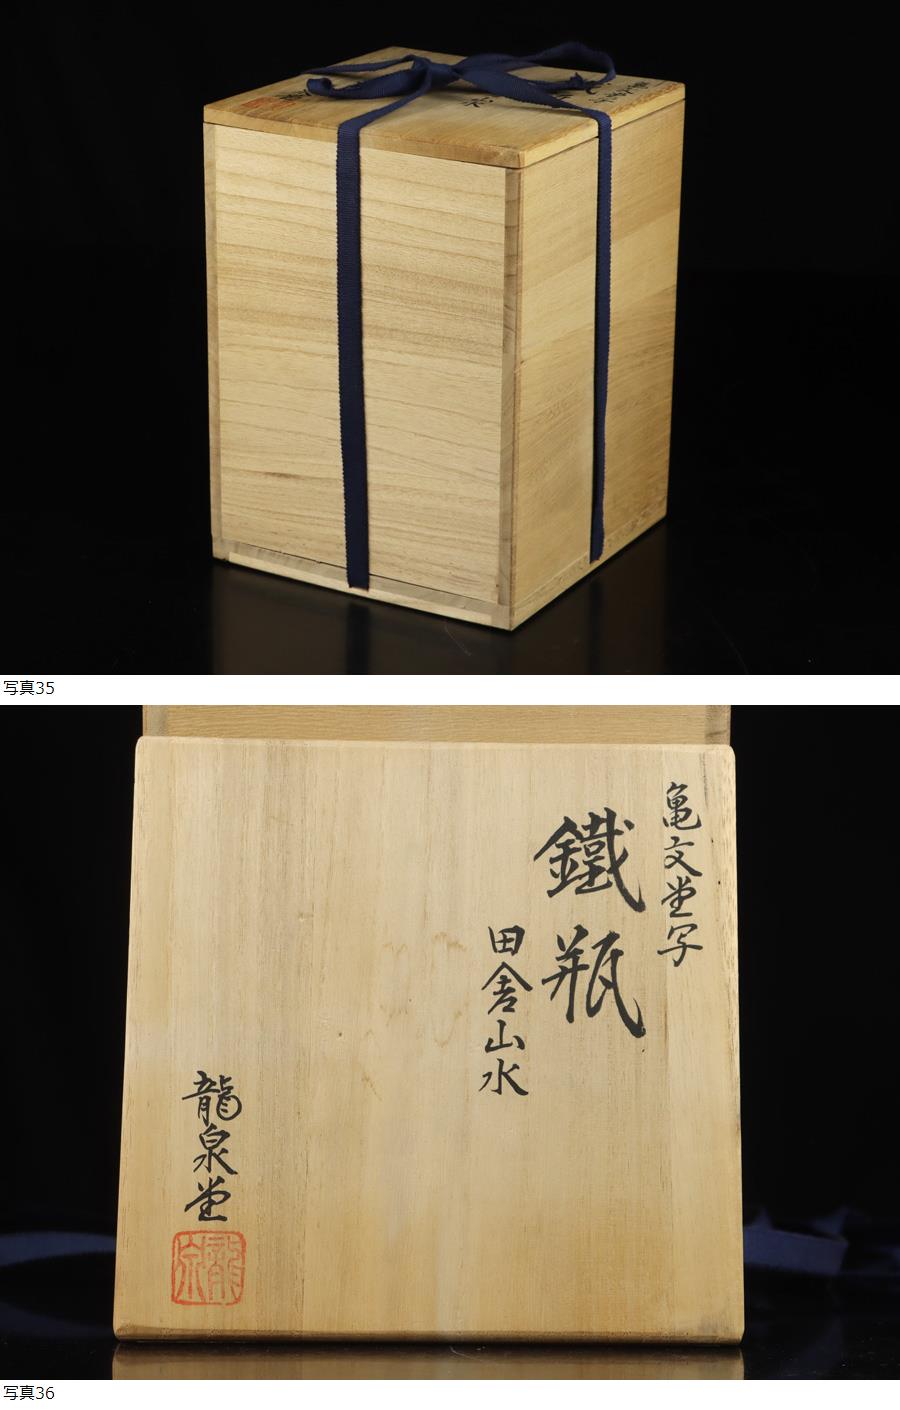 写真35
亀文堂写
鐵瓶
田舎山水
龍泉堂
写真36